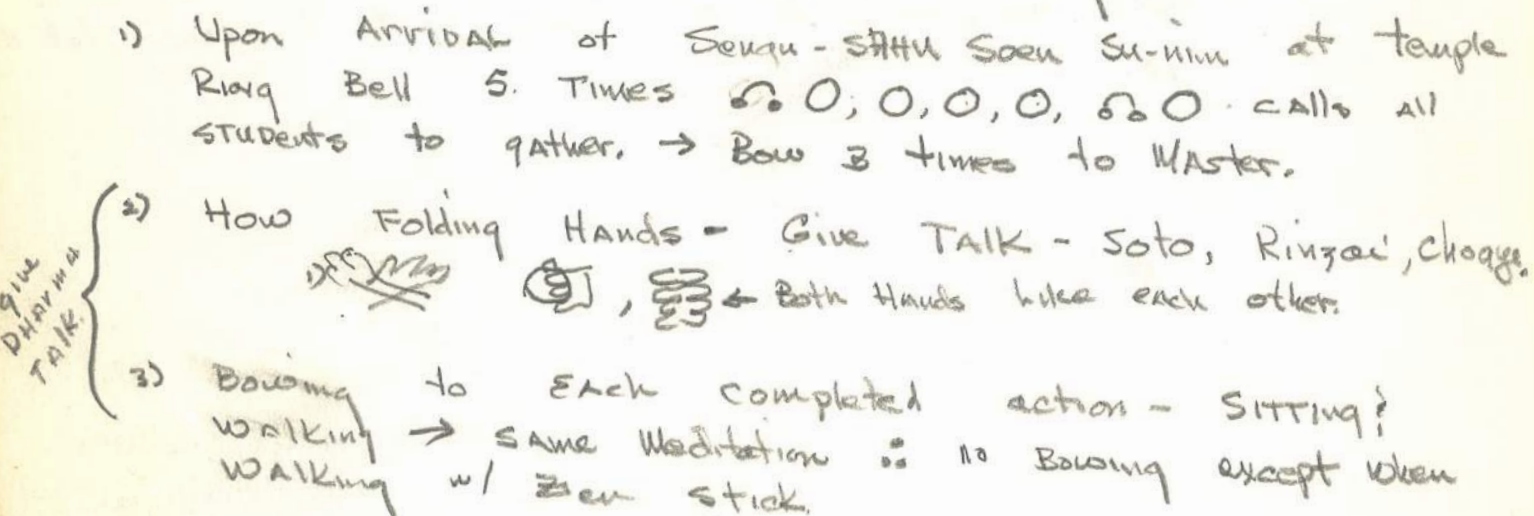 1) Upon Arrival of Seung-SAHN Soen Su-nim at temple
Ring Bell 5. Times O, O, O, O, O. calls All
STUDENTS to gather. → Bow 3 times to MAster.
give DHArmA TAlk.
2) How Folding HAnds - Give TALK - Soto, Rinzai, Chogye.
1) , ← Both Hands Like each other.
3) Bowing to EAch completed action - SITTING?
WAlking → SAme Meditation ∴ no Bowing except when
WAlking w/ Zen stick.